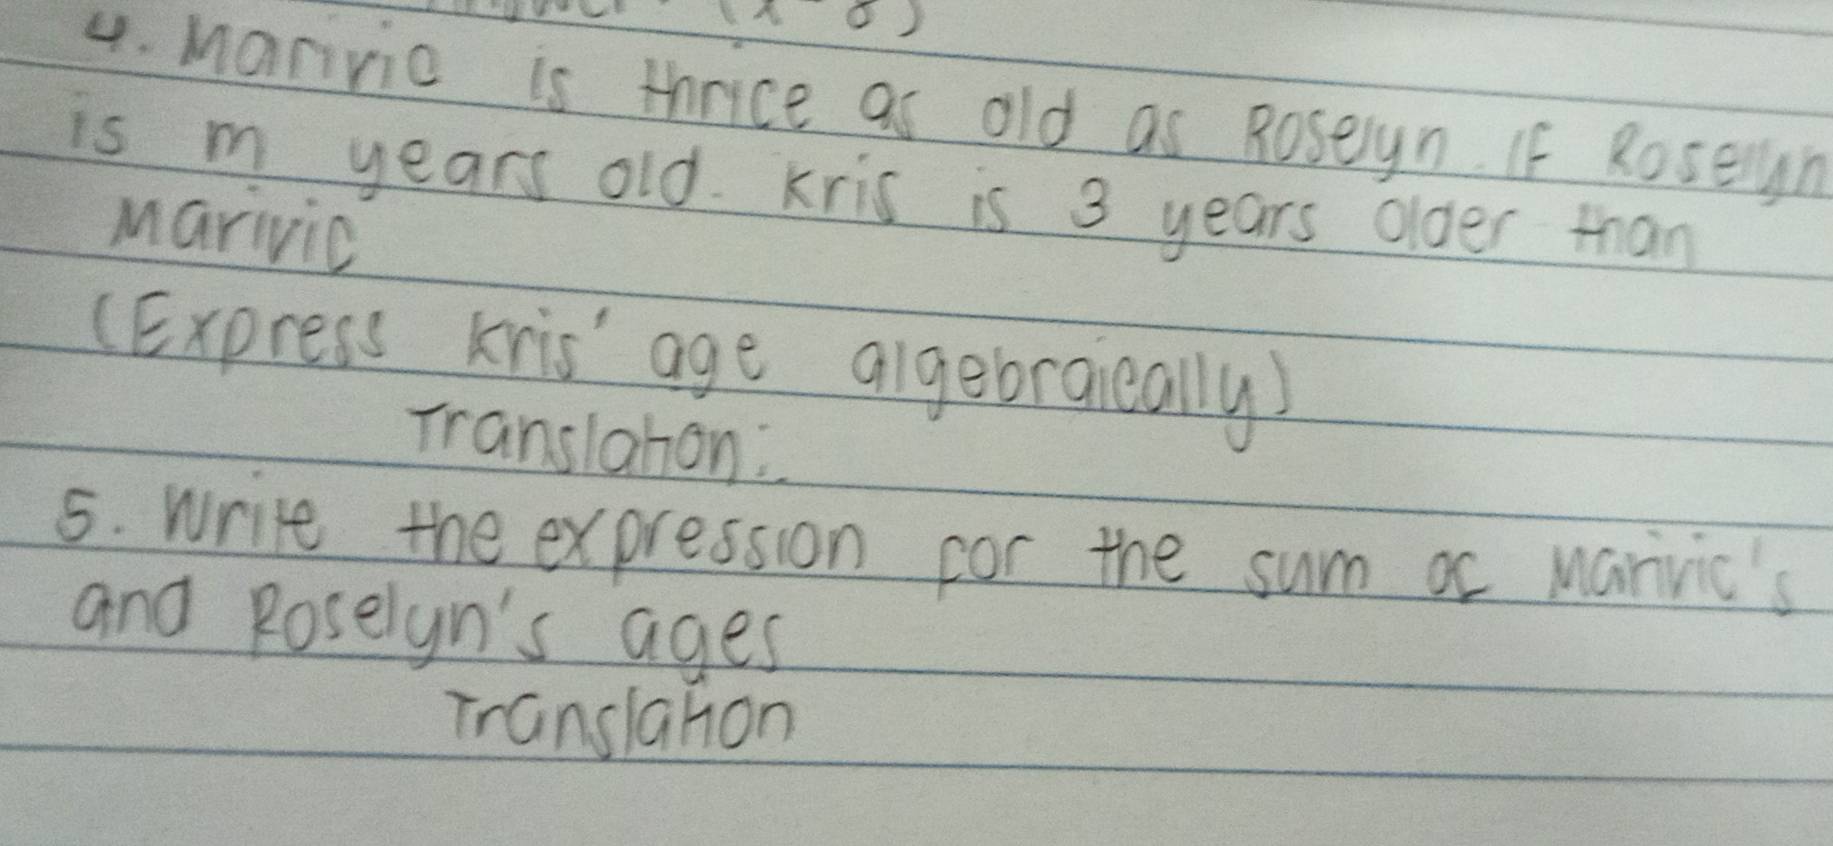 4. Marivic is thrice as old as Roselyn. If Roselyn
is m years old. Kris is 3 years older than
Marivic
(Express Kris' age algebraically)
Translation:
5. Write the expression for the sum of Marivic's
and Roselyn's ages
Translation